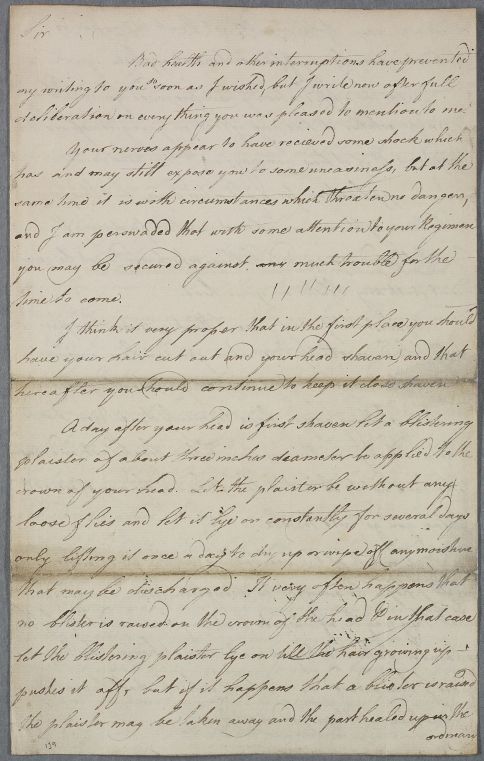 Sir
Bad health and other interruptions have prevented
my writing to you so soon as I wished, but I write now after full
deliberation on every thing you was pleased to mention to me.
Your nerves appear to have recieved some shock which
has and may still expose you to some uneasiness, but at the
same time it is with circumstances which threaten no danger,
and I am perswaded that with some attention to your Regimen
you may be secured against any much trouble for the
time to come.
I think it very proper that in the first place you should
have your hair cut out and your head shaven and that
hereafter you should continue to keep it close shaven
A day after your head is first shaven let a blistering
plaister of about three inches diameter be applied to the
crown of your head. Let the plaister be without any
loose flies and let it lye on constantly for several days
only lifting it once a day to dry up or wipe off any moisture
that may be discharged It very often happens that
no blister is raised on the crown of the head & in that case
let the blistering plaister lye on till the hair growing up
pushes it off, but if it happens that a blister is raised
the plaister may be taken away and the part healed up in the
ordinary
139